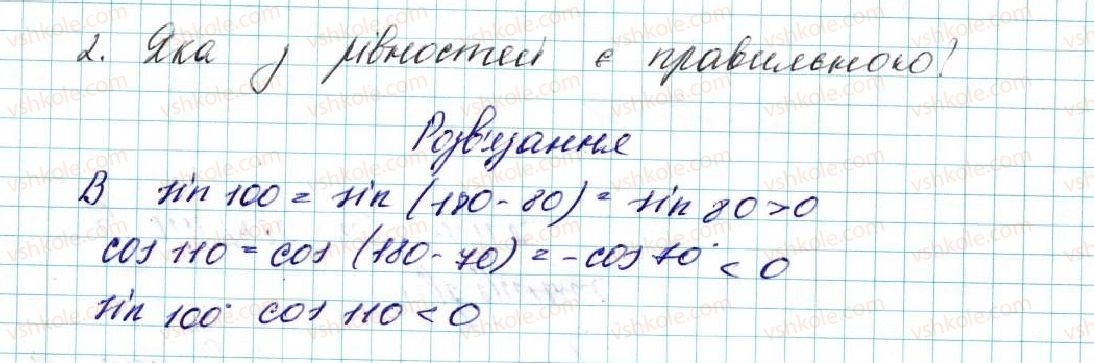 2. Яка з рівностей є правильною?
Розв'язання
В sin 100 = sin (180 - 80) = sin 80 > 0
cos 110 = cos (180 - 70) = - cos 70° < 0
sin 100° cos 110 < 0